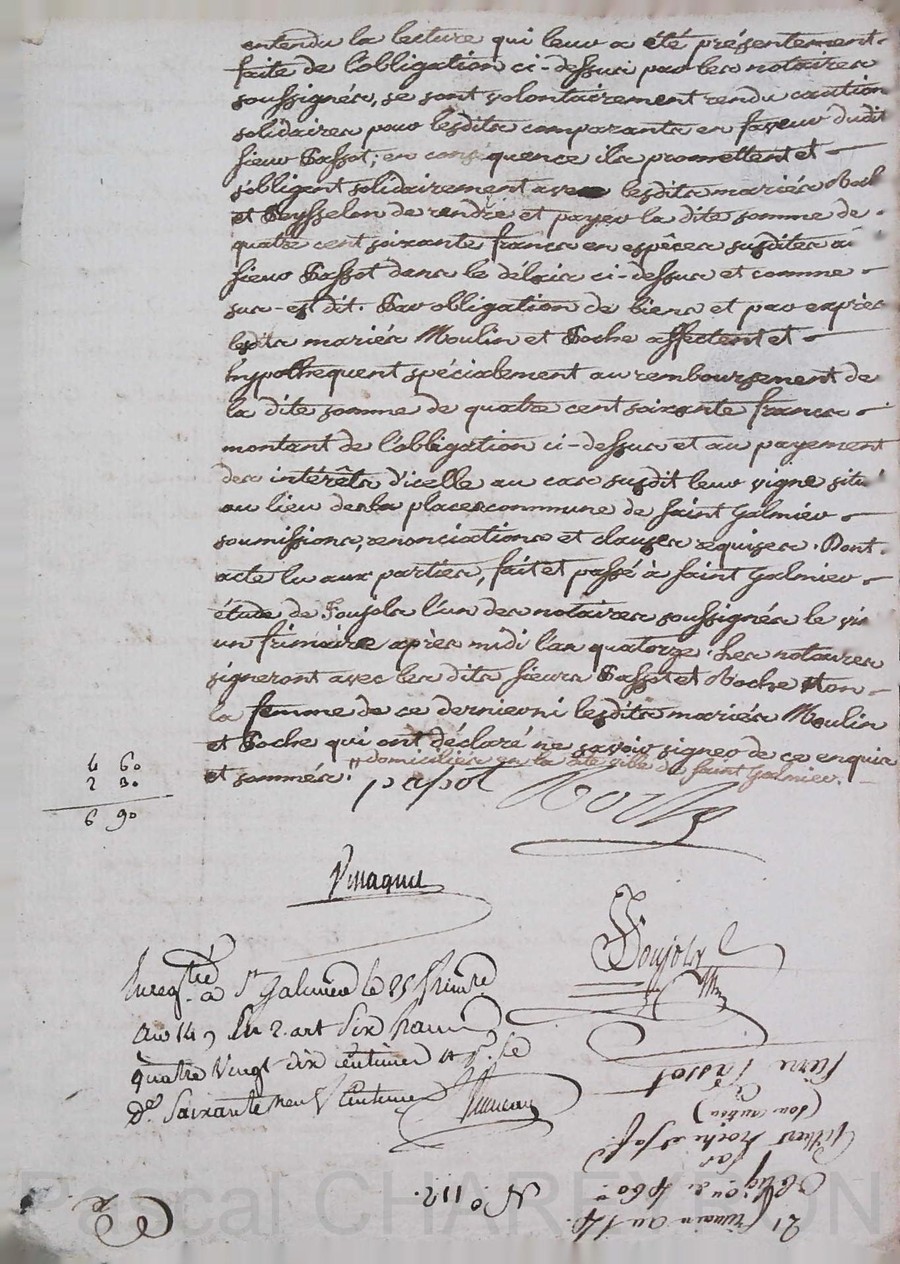 entendu la lecture qui leur a été présentement
faite de l'obligation ci-dessus par les notaires
soussignés, se sont volontairement rendu caution
solidaires pour lesdits comparants en faveur dudit
sieur Passot; en conséquence ils promettent et
s'obligent solidairement avec lesdits mariés
et Peysselon de rendre et payer la dite somme de
quatre cent soixante francs en espèces susdites au
sieur Passot dans le délais ci-dessus et comme
sus-est dit. Par obligation de biens et par exprès
lesdits mariés Moulin et Poche affectent et
hypothequent spécialement au remboursement de
la dite somme de quatre cent soixante francs
montant de l'obligation ci-dessus et au payement
des intérêts d'icelle au cas susdit leur vigne situé
au lieu de la place commune de Saint Galmier
soumissions, renonciations et clauses requises. Dont
acte lu aux parties, fait et passé à Saint Galmier
étude de Foujols l'un des notaires soussignés le vingt
un frimaire après midi l'an quatorze. Les notaires
signeront avec les dits sieurs Passot et Roche non
la femme de ce dernier ni lesdits mariés Moulin
et Poche qui ont déclaré ne savoir signer de ce enquis
et sommés. domiciliés en la dite ville de Saint Galmier.
4 60
2 30
6 90
papot
Foujols
Enregistré à St Galmier le 25 frimre
an 14, six francs
quatre vingt dix centimes
Dme Soixante neuf Centimes
Pierre Passot
(son cution)
Roche
par
Obligion de 460
21 frimaire an 14.
No 112.
Pascal CHAREYRON